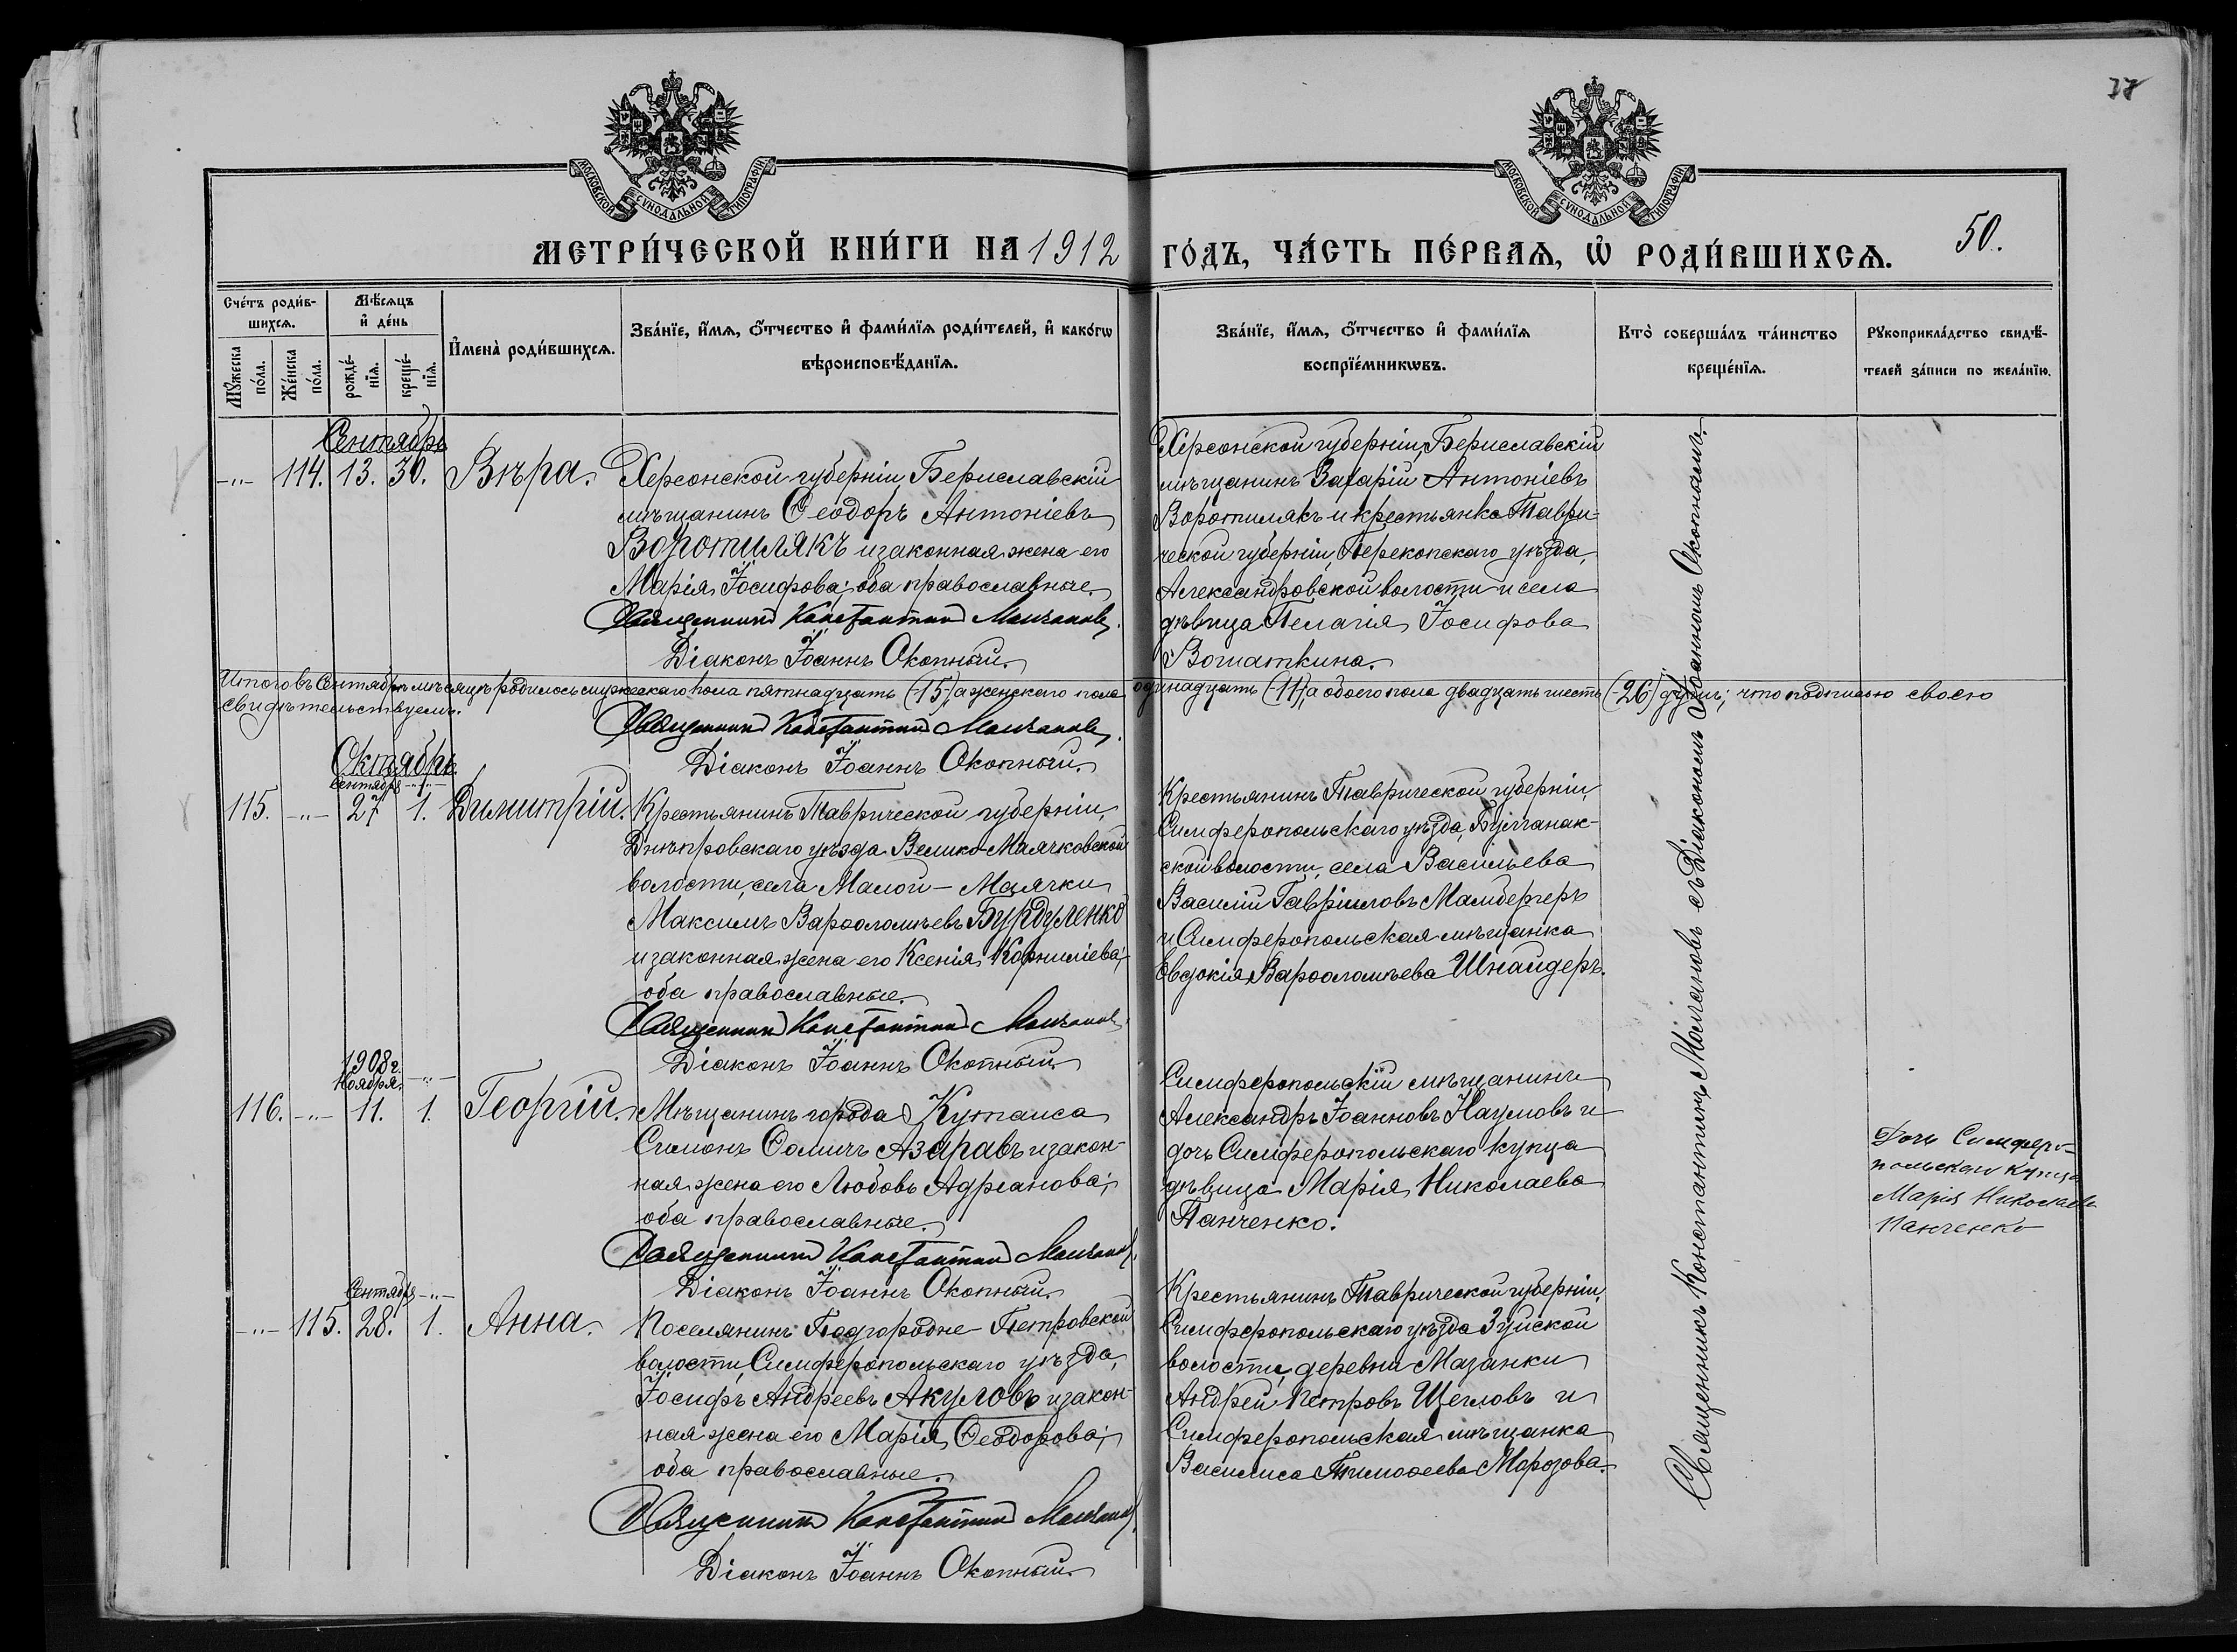 38
МОСКОВСКОЙ СѴНОДАЛЬНОЙ ТИПОГРАФІИ
МОСКОВСКОЙ СѴНОДАЛЬНОЙ ТИПОГРАФІИ
МЕТРИ́ЧЕСКОЙ КНИ́ГИ НА 1912 ГО́ДЪ, ЧА́СТЬ ПЕ́РВАѦ, Ѡ҆ РОДИ́ВШИХСѦ.
50.
Сче́тъ роди́в-
шихсѧ.
Мꙋ́жеска по́ла.
Же́нска по́ла.
Мѣ́сѧцъ
и҆ де́нь
рожде́-
нїѧ.
креще́-
нїѧ.
И҆мена̀ роди́вшихсѧ.
Зва́нїе, и҆́мѧ, ѻ҆́тчество и҆ фами́лїѧ роди́телей, и҆ како́гѡ
вѣроисповѣ́данїѧ.
Зва́нїе, и҆́мѧ, ѻ҆́тчество и҆ фами́лїѧ
воспрїе́мникѡвъ.
Кто̀ соверша́лъ та́инство
креще́нїѧ.
Рꙋкоприкла́дство свидѣ́-
телей за́писи по жела́нїю.
Сентябрь
-"- 114. 13. 30. Вѣра.
Херсонской губерніи, Бериславскій
мѣщанинъ Ѳеодоръ Антоніевъ
Воротилякъ и законная жена его
Марія Іосифова; оба православные.
Священникъ Константинъ Молчановъ.
Діаконъ Іоаннъ Окопный.
Херсонской губерніи, Бериславскій
мѣщанинъ Захарій Антоніевъ
Воротилякъ и крестьянка Таври-
ческой губерніи, Перекопскаго уѣзда,
Александровской волости и села
дѣвица Пелагія Іосифова
Вошаткина.
Итого въ Сентябрѣ мѣсяцѣ родилось мужескаго пола пятнадцать (-15-), а женскаго пола одинадцать (-11-), а обоего пола двадцать шесть (-26-) душъ; что подписью своею
свидѣтельствуемъ.
Священникъ Константинъ Молчановъ.
Діаконъ Іоаннъ Окопный.
Октябрь
Сентября -"-
115. -"- 27 1. Димитрій.
Крестьянинъ Таврической губерніи,
Днѣпровскаго уѣзда Велико-Маячковской
волости, села Малой-Маячки
Максимъ Варѳоломѣевъ Бурдуленко
и законная жена его Ксенія Корниліева;
оба православные.
Священникъ Константинъ Молчановъ.
Діаконъ Іоаннъ Окопный.
Крестьянинъ Таврической губерніи,
Симферопольскаго уѣзда, Булганак-
ской волости, села Васильева
Василій Гавріиловъ Мамбергеръ
и Симферопольская мѣщанка
Евдокія Варѳоломѣева Шнайдеръ.
1908 г.
Ноября. -"-
116. -"- 11. 1. Георгій.
Мѣщанинъ города Кутаиса
Симонъ Ѳомичъ Азаравъ и закон-
ная жена его Любовь Адрианова;
оба православные.
Священникъ Константинъ Молчановъ.
Діаконъ Іоаннъ Окопный.
Симферопольскій мѣщанинъ
Александръ Іоанновъ Наумовъ и
дочь Симферопольскаго купца
дѣвица Марія Николаева
Панченко.
Дочь Симферо-
польскаго купца
Марія Николаева
Панченко
Сентября -"-
-"- 115. 28. 1. Анна.
Поселянинъ Подгородне-Петровской
волости, Симферопольскаго уѣзда,
Іосифъ Андреевъ Акуловъ и закон-
ная жена его Марія Ѳеодорова;
оба православные.
Священникъ Константинъ Молчановъ.
Діаконъ Іоаннъ Окопный.
Крестьянинъ Таврической губерніи,
Симферопольскаго уѣзда Зуйской
волости, деревни Мазанки
Андрей Петровъ Щегловъ и
Симферопольская мѣщанка
Василиса Тимоѳеева Морозова.
Священникъ Константинъ Молчановъ съ Діакономъ Іоанномъ Окопнымъ.